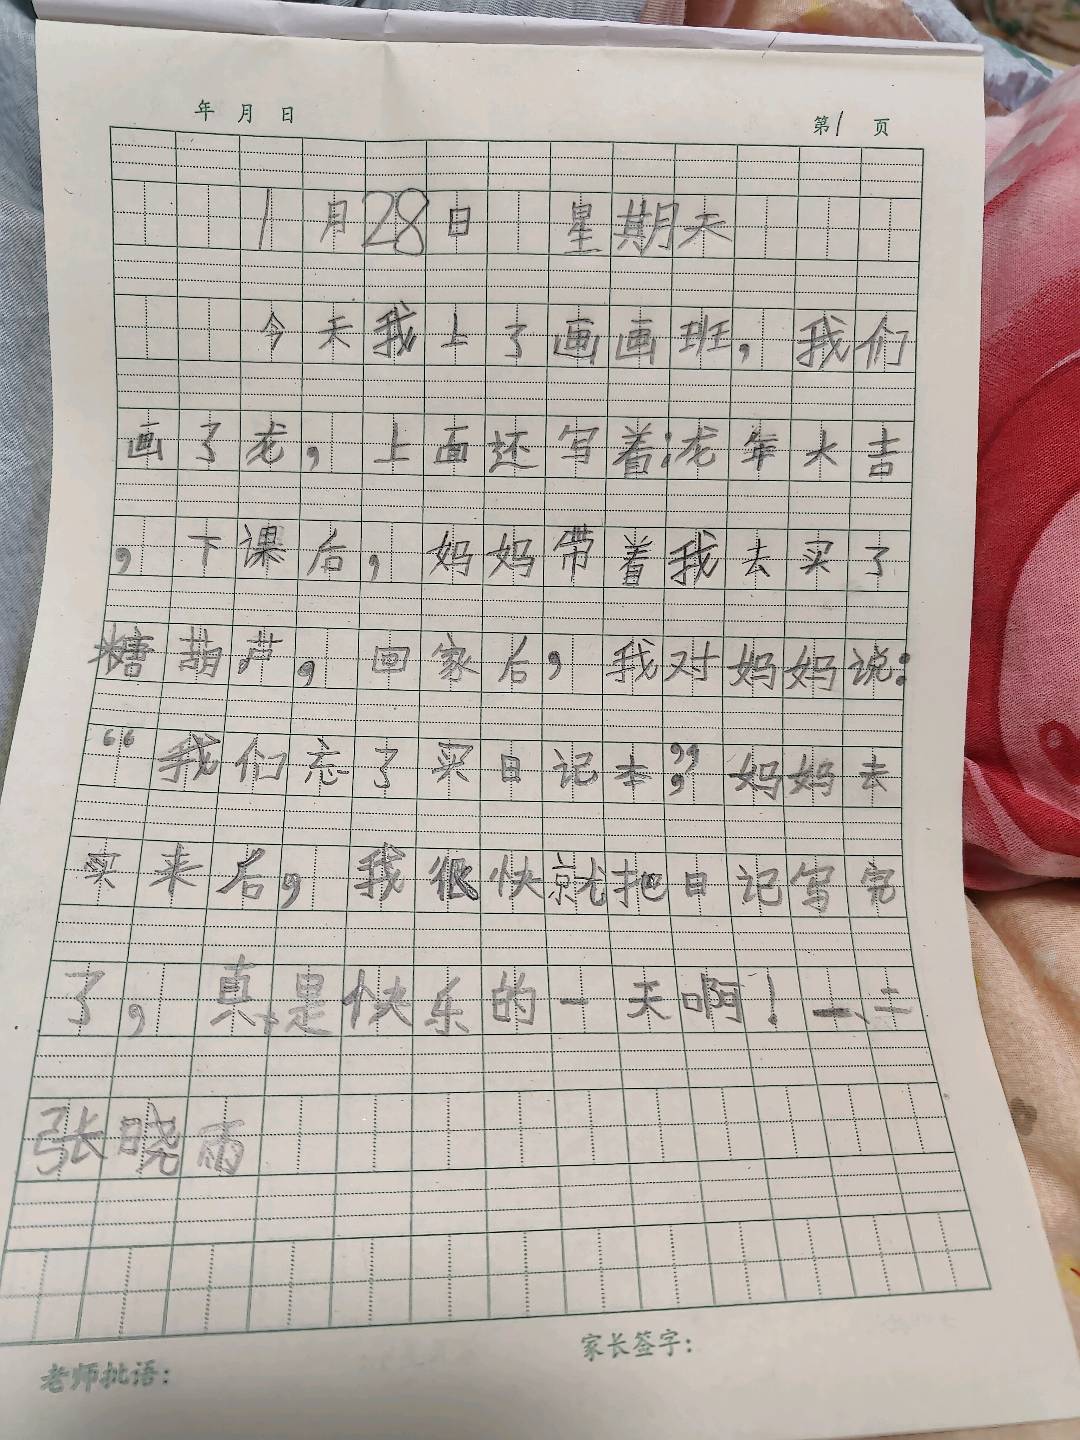 年 月 日 第1页
1月28日 星期天
今天我上了画画班，我们
画了龙，上面还写着：龙年大吉
，下课后，妈妈带着我去买了
糖葫芦，回家后，我对妈妈说：
“我们忘了买日记本”，妈妈去
买来后，我很快就把日记写完
了，真是快乐的一天啊！一、二
张晓雨
家长签字：
老师批语：